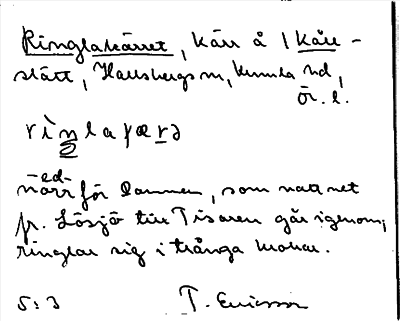 Ringlakärret, kärr å 1 Kåle-
slätt, Hallsbergs sn, Kumla hd,
Ör. l.
rìŋlaɟærə
-ed-
norr för dammen, som vattnet
fr. Lösjö till Tisaren går igenom,
ringlar sig i trånga krokar.
5:3 T. Ericsson